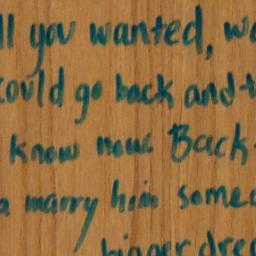 ll you wanted, wo
could go back and t
know now. Back
marry him some
bigger dre